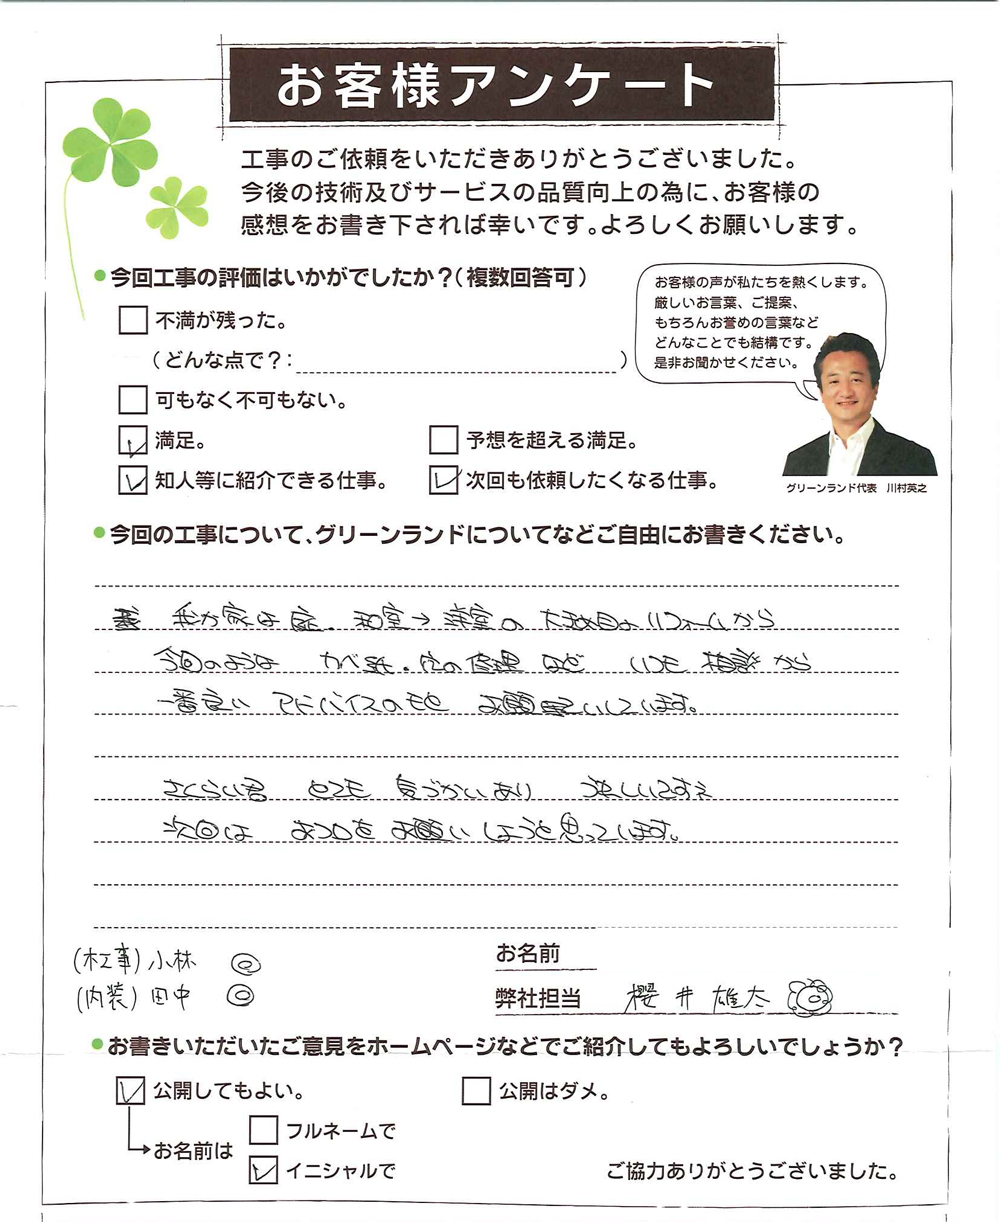 お客様アンケート
工事のご依頼をいただきありがとうございました。
今後の技術及びサービスの品質向上の為に、お客様の
感想をお書き下されば幸いです。よろしくお願いします。
今回工事の評価はいかがでしたか?(複数回答可)
不満が残った。
(どんな点で?: )
可もなく不可もない。
満足。
予想を超える満足。
知人等に紹介できる仕事。
次回も依頼したくなる仕事。
お客様の声が私たちを熱くします。
厳しいお言葉、ご提案、
もちろんお誉めの言葉など
どんなことでも結構です。
是非お聞かせください。
グリーンランド代表 川村英之
今回の工事について、グリーンランドについてなどご自由にお書きください。
我が家は 和室→洋室の 大改造リフォームから
今回のような カベ紙・ の修理 など いつも 相談から
一番良い アドバイスのもと お願いしています。
さくらい君 とても 気づかいあり 楽しいですネ
次回は おフロを お願い しようと思っています。
(木工事)小林 ◎
(内装)田中 ◎
お名前
弊社担当 櫻井雄太
お書きいただいたご意見をホームページなどでご紹介してもよろしいでしょうか?
公開してもよい。
公開はダメ。
お名前は
フルネームで
イニシャルで
ご協力ありがとうございました。